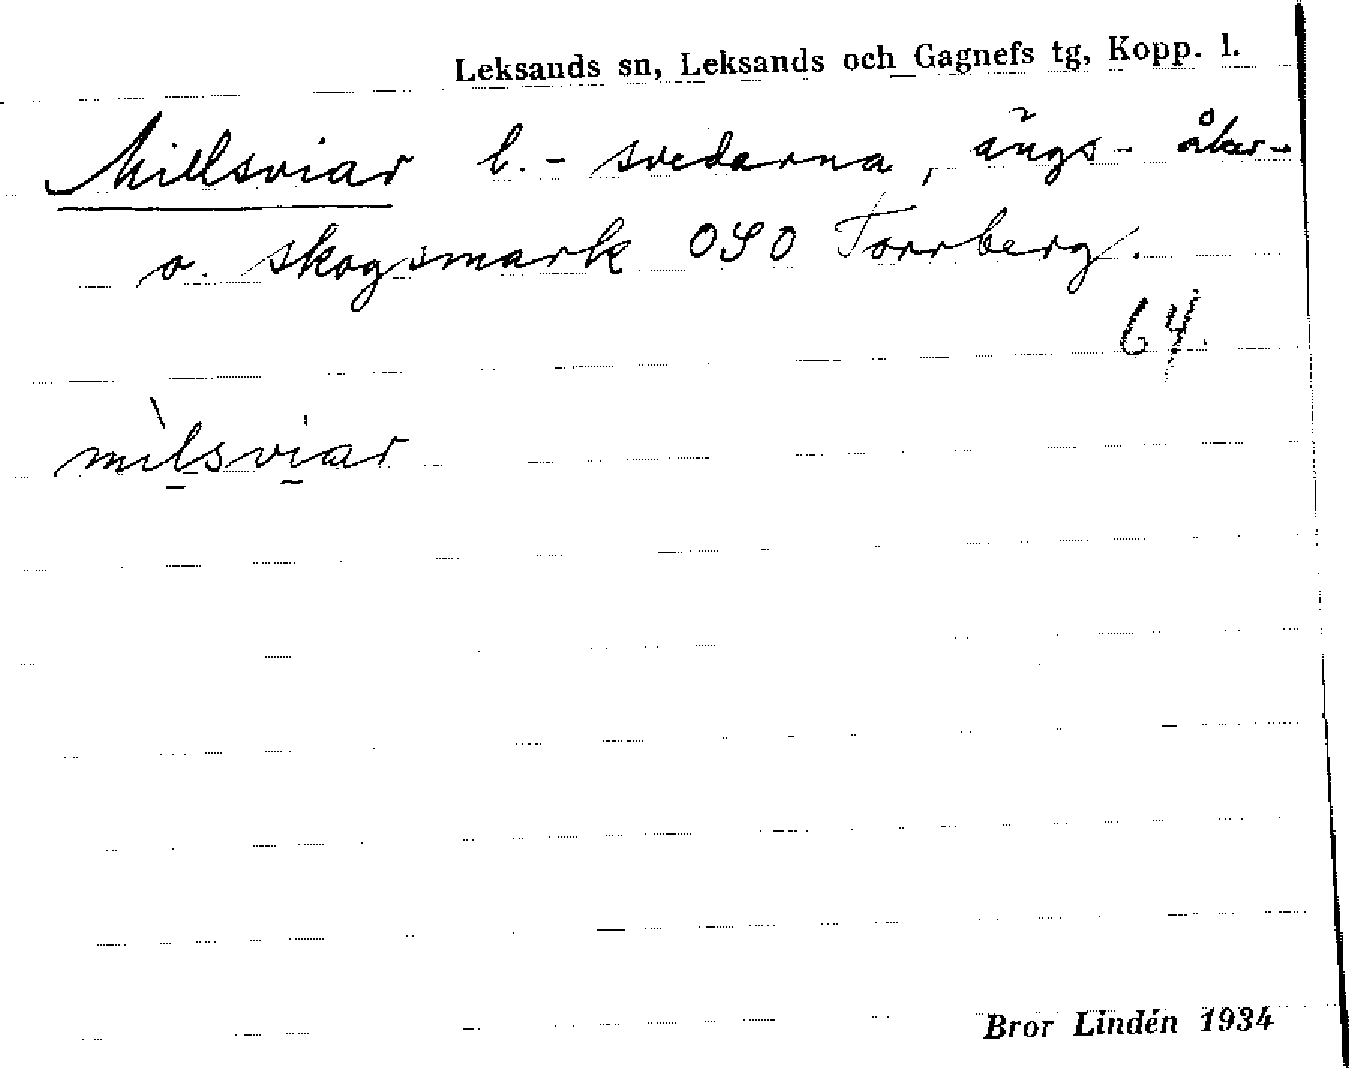 Leksands sn, Leksands och Gagnefs tg, Kopp. l.
Millsviar l. - svedarna, ängs- åker-
o. skogsmark OSO Torrberg.
64.
mìlsviar
Bror Lindén 1934